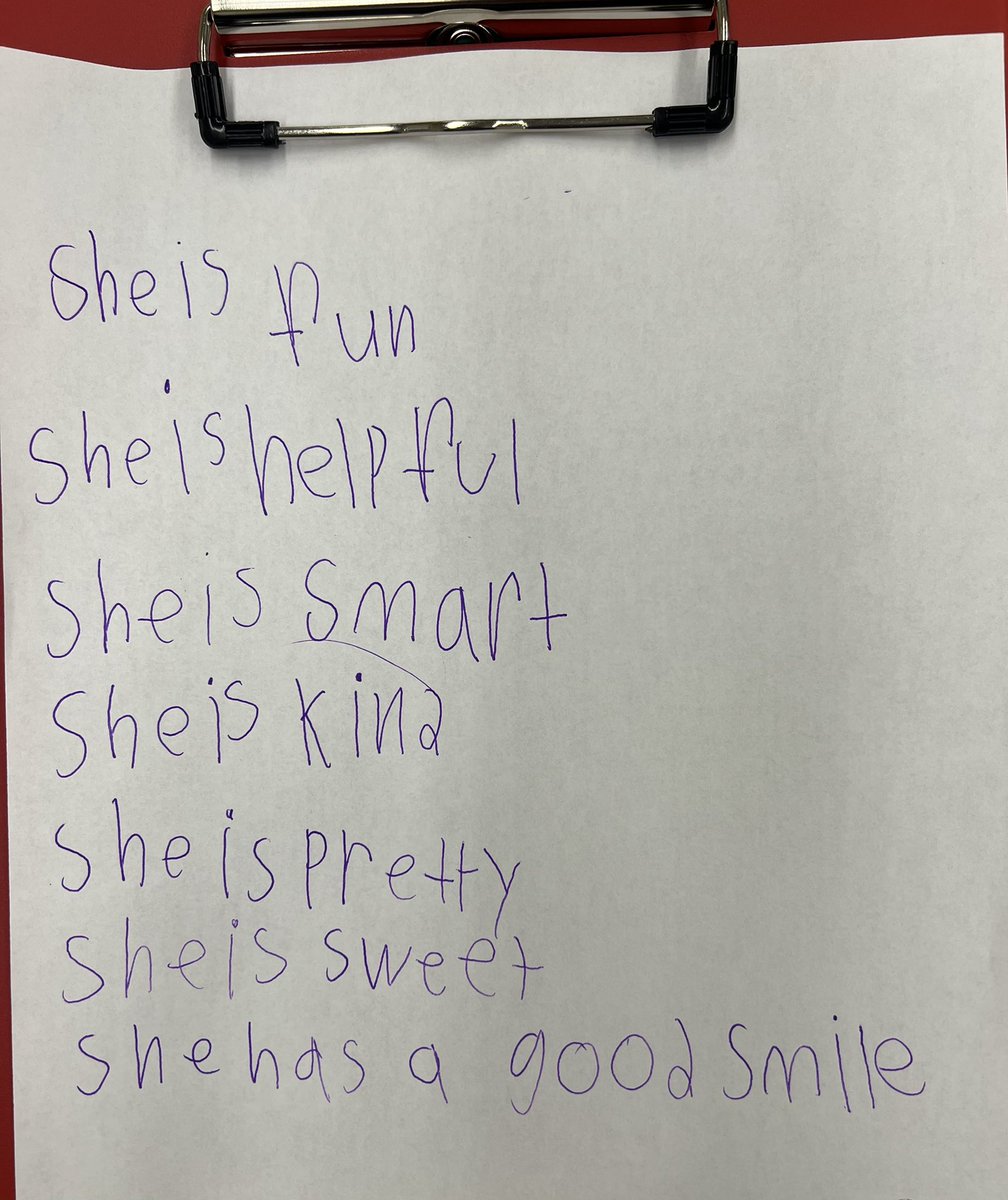 She is fun
She is helpful
She is smart
She is kind
She is pretty
She is sweet
She has a good smile